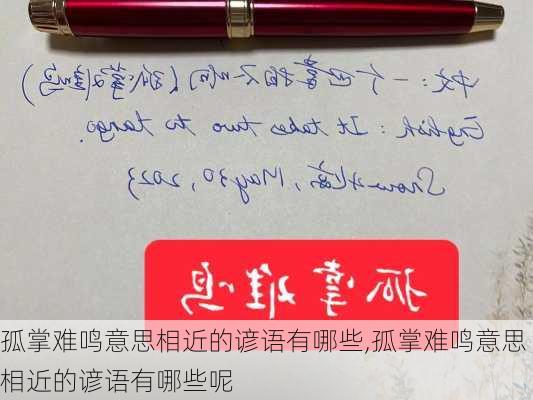 中文：一个巴掌拍不响（孤掌难鸣）
English: It takes two to tango.
Snow , May 30, 2023
孤掌难鸣
孤掌难鸣意思相近的谚语有哪些,孤掌难鸣意思
相近的谚语有哪些呢